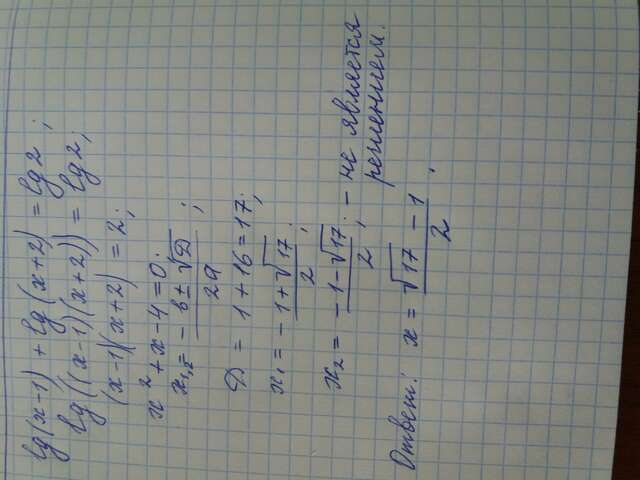 lg(x-1) + lg(x+2) = lg2 ;
lg((x-1)(x+2)) = lg2;
(x-1)(x+2) = 2;
x² + x - 4 = 0;
x₁,₂ = (-b ± √D)/2a ;
D = 1 + 16 = 17;
x₁ = (-1 + √17)/2 ;
x₂ = (-1 - √17)/2 ; - не является
решением.
Ответ: x = (√17 - 1)/2 .